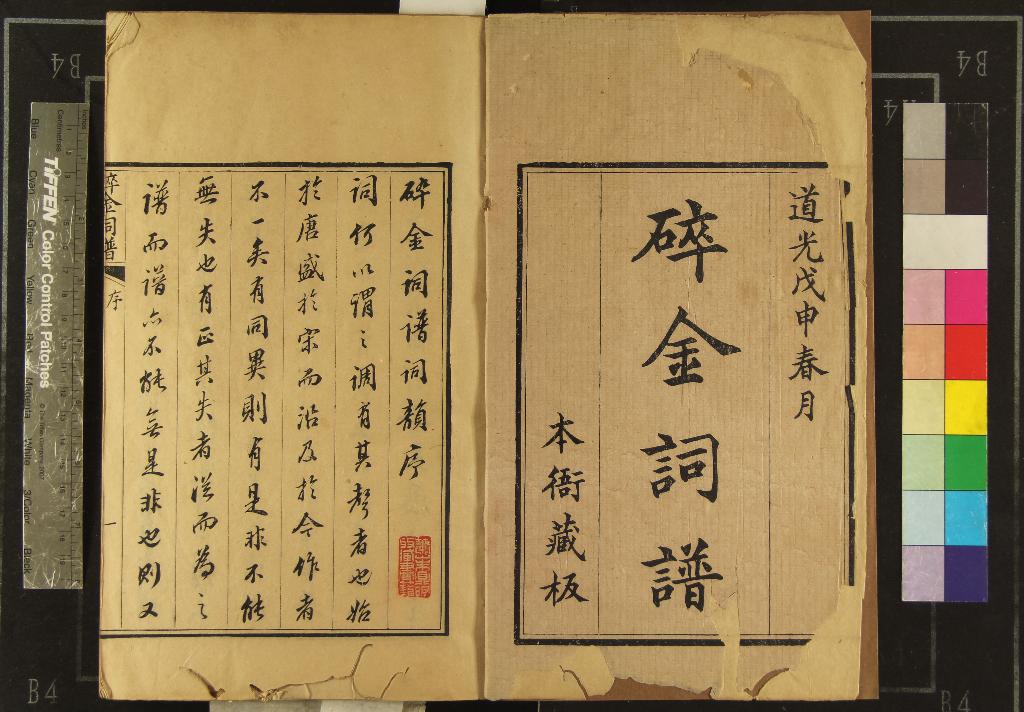 道光戊申春月
碎金詞譜
本衙藏板
碎金詞譜詞韻序
詞何以謂之調有其聲者也始
於唐盛於宋而沿及於今作者
不一矣有同異則有是非不能
無失也有正其失者從而為之
譜而譜亦不能無是非也則又
碎金詞譜
序
一
TIFFEN Color Control Patches
Blue
Cyan
Green
Yellow
Red
Magenta
White
3/Color
Black
Centimetres
Inches
B4
B4
B4
B4